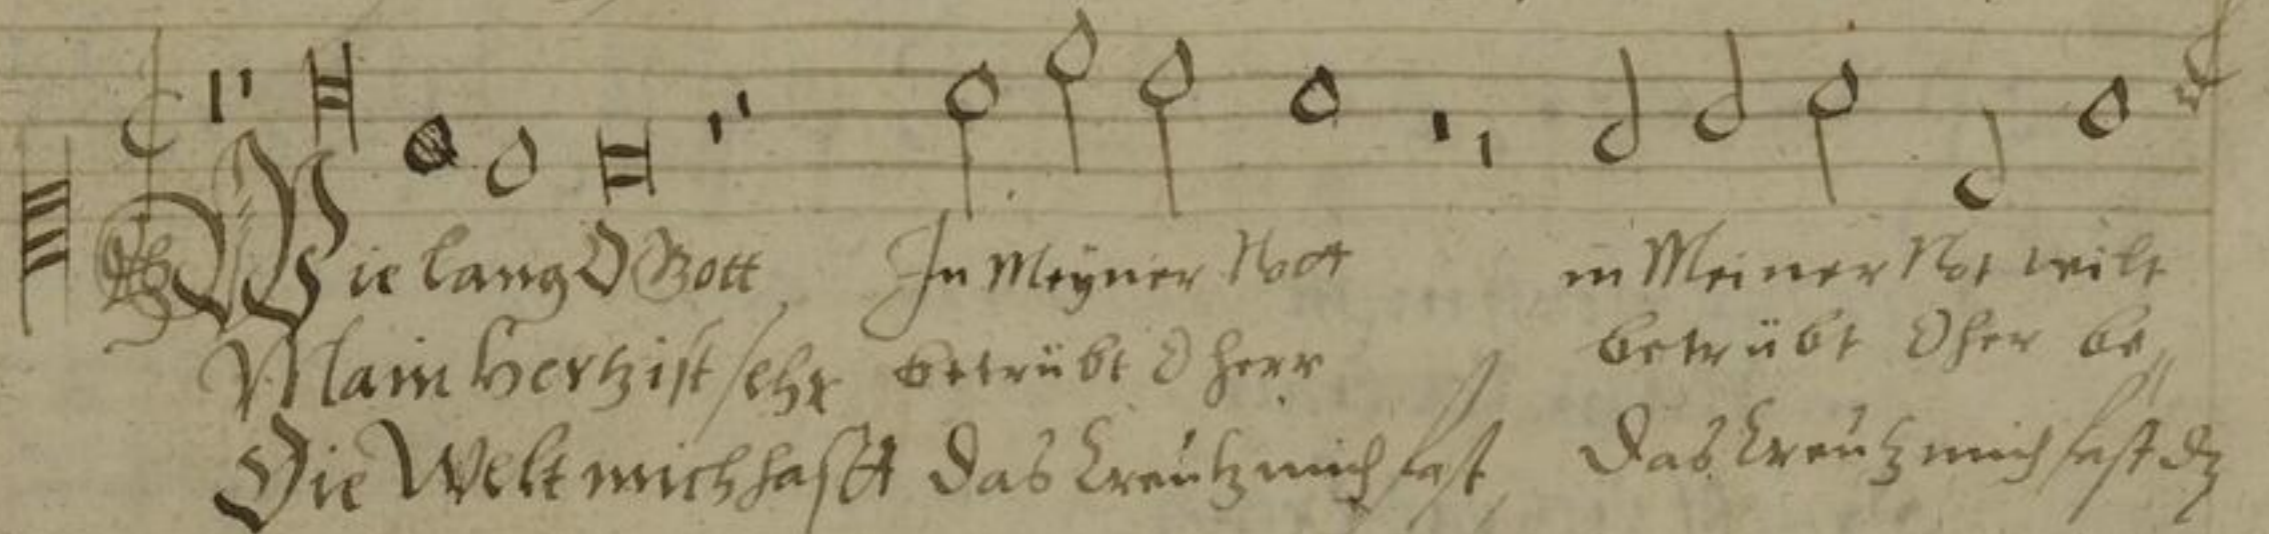 Wie lang O Gott In Meyner Nott in Meiner Not wilt
Main Hertz ist sehr betrübt O herr betrübt O her be„
Die Welt mich hasst das Creutz mich fast das Creutz mich fast dz